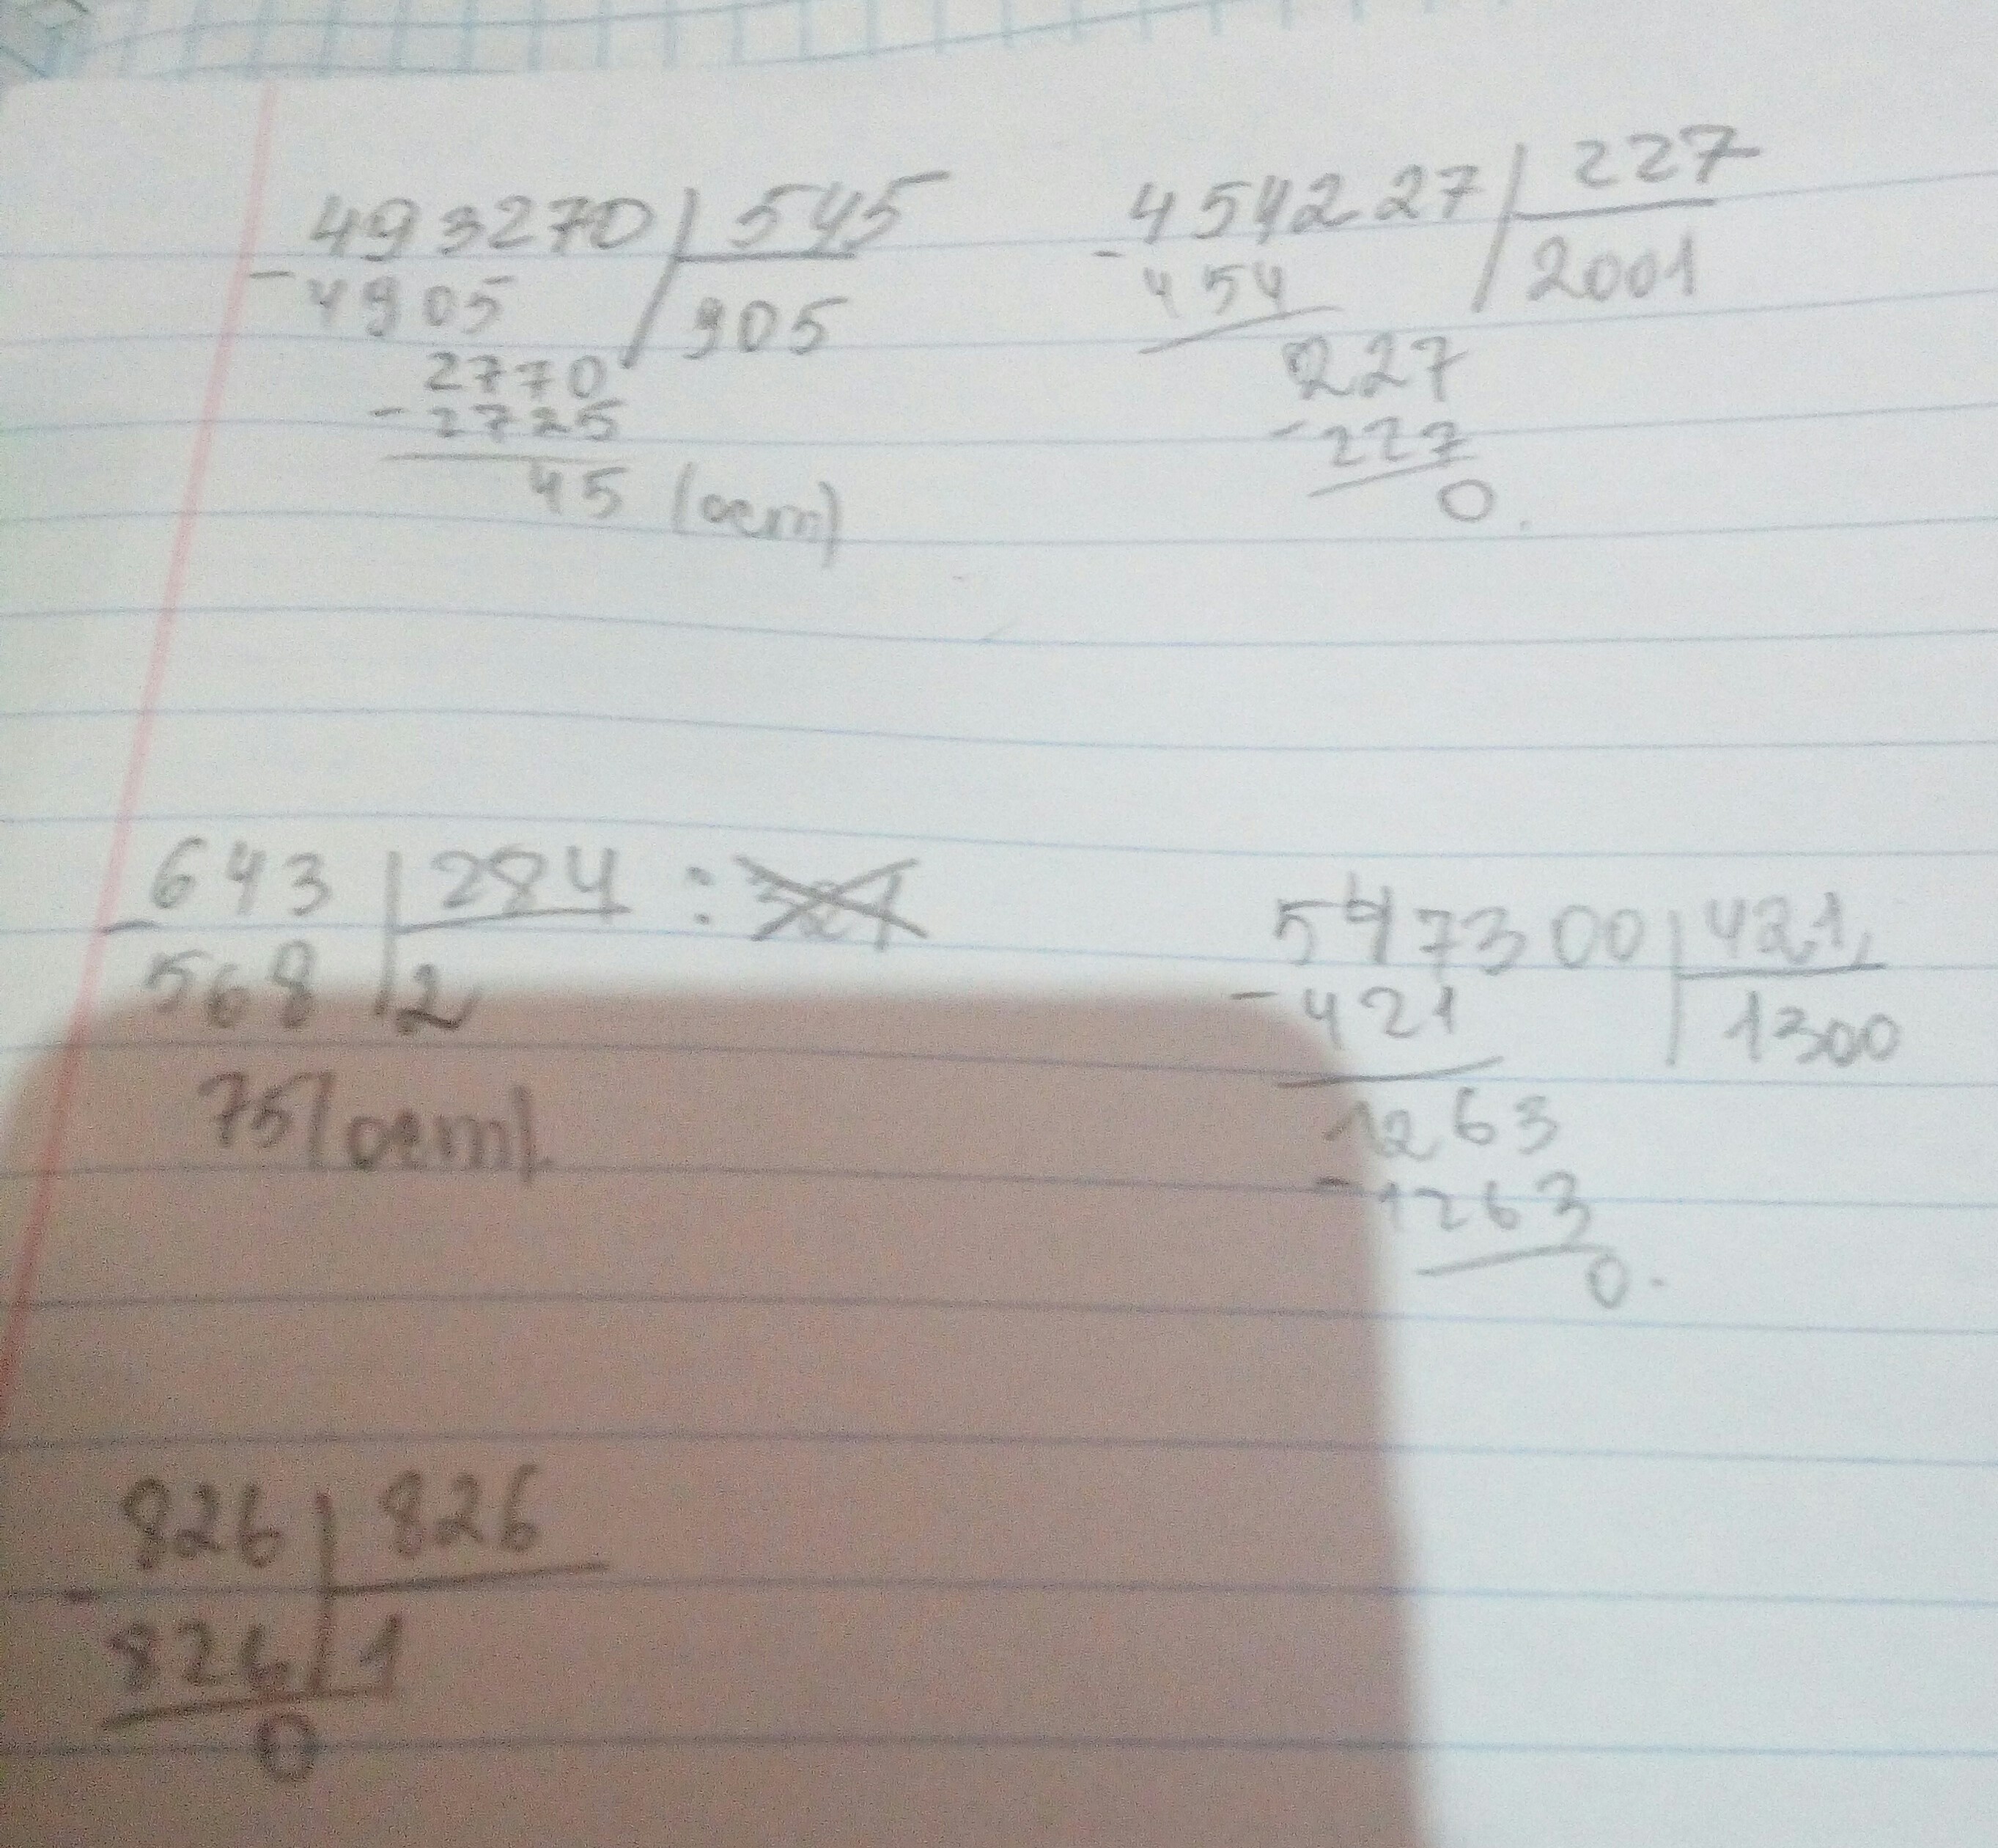 493270 545
- 4905 905
2770
- 2725
45 (ост)
454227 227
- 454 2001
227
- 227
0.
643 284 :
- 568 2
75 (ост).
547300 421
- 421 1300
1263
- 1263
0.
826 826
- 826 1
0